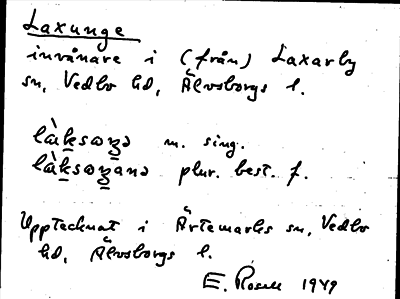 Laxunge
invånare i (från) Laxarby
sn, Vedbo hd, Älvsborgs l.
làksωŋə m. sing.
làksωŋanə plur. best. f.
Upptecknat i Ärtemarks sn, Vedbo
hd, Älvsborgs l.
E. Rosell 1949